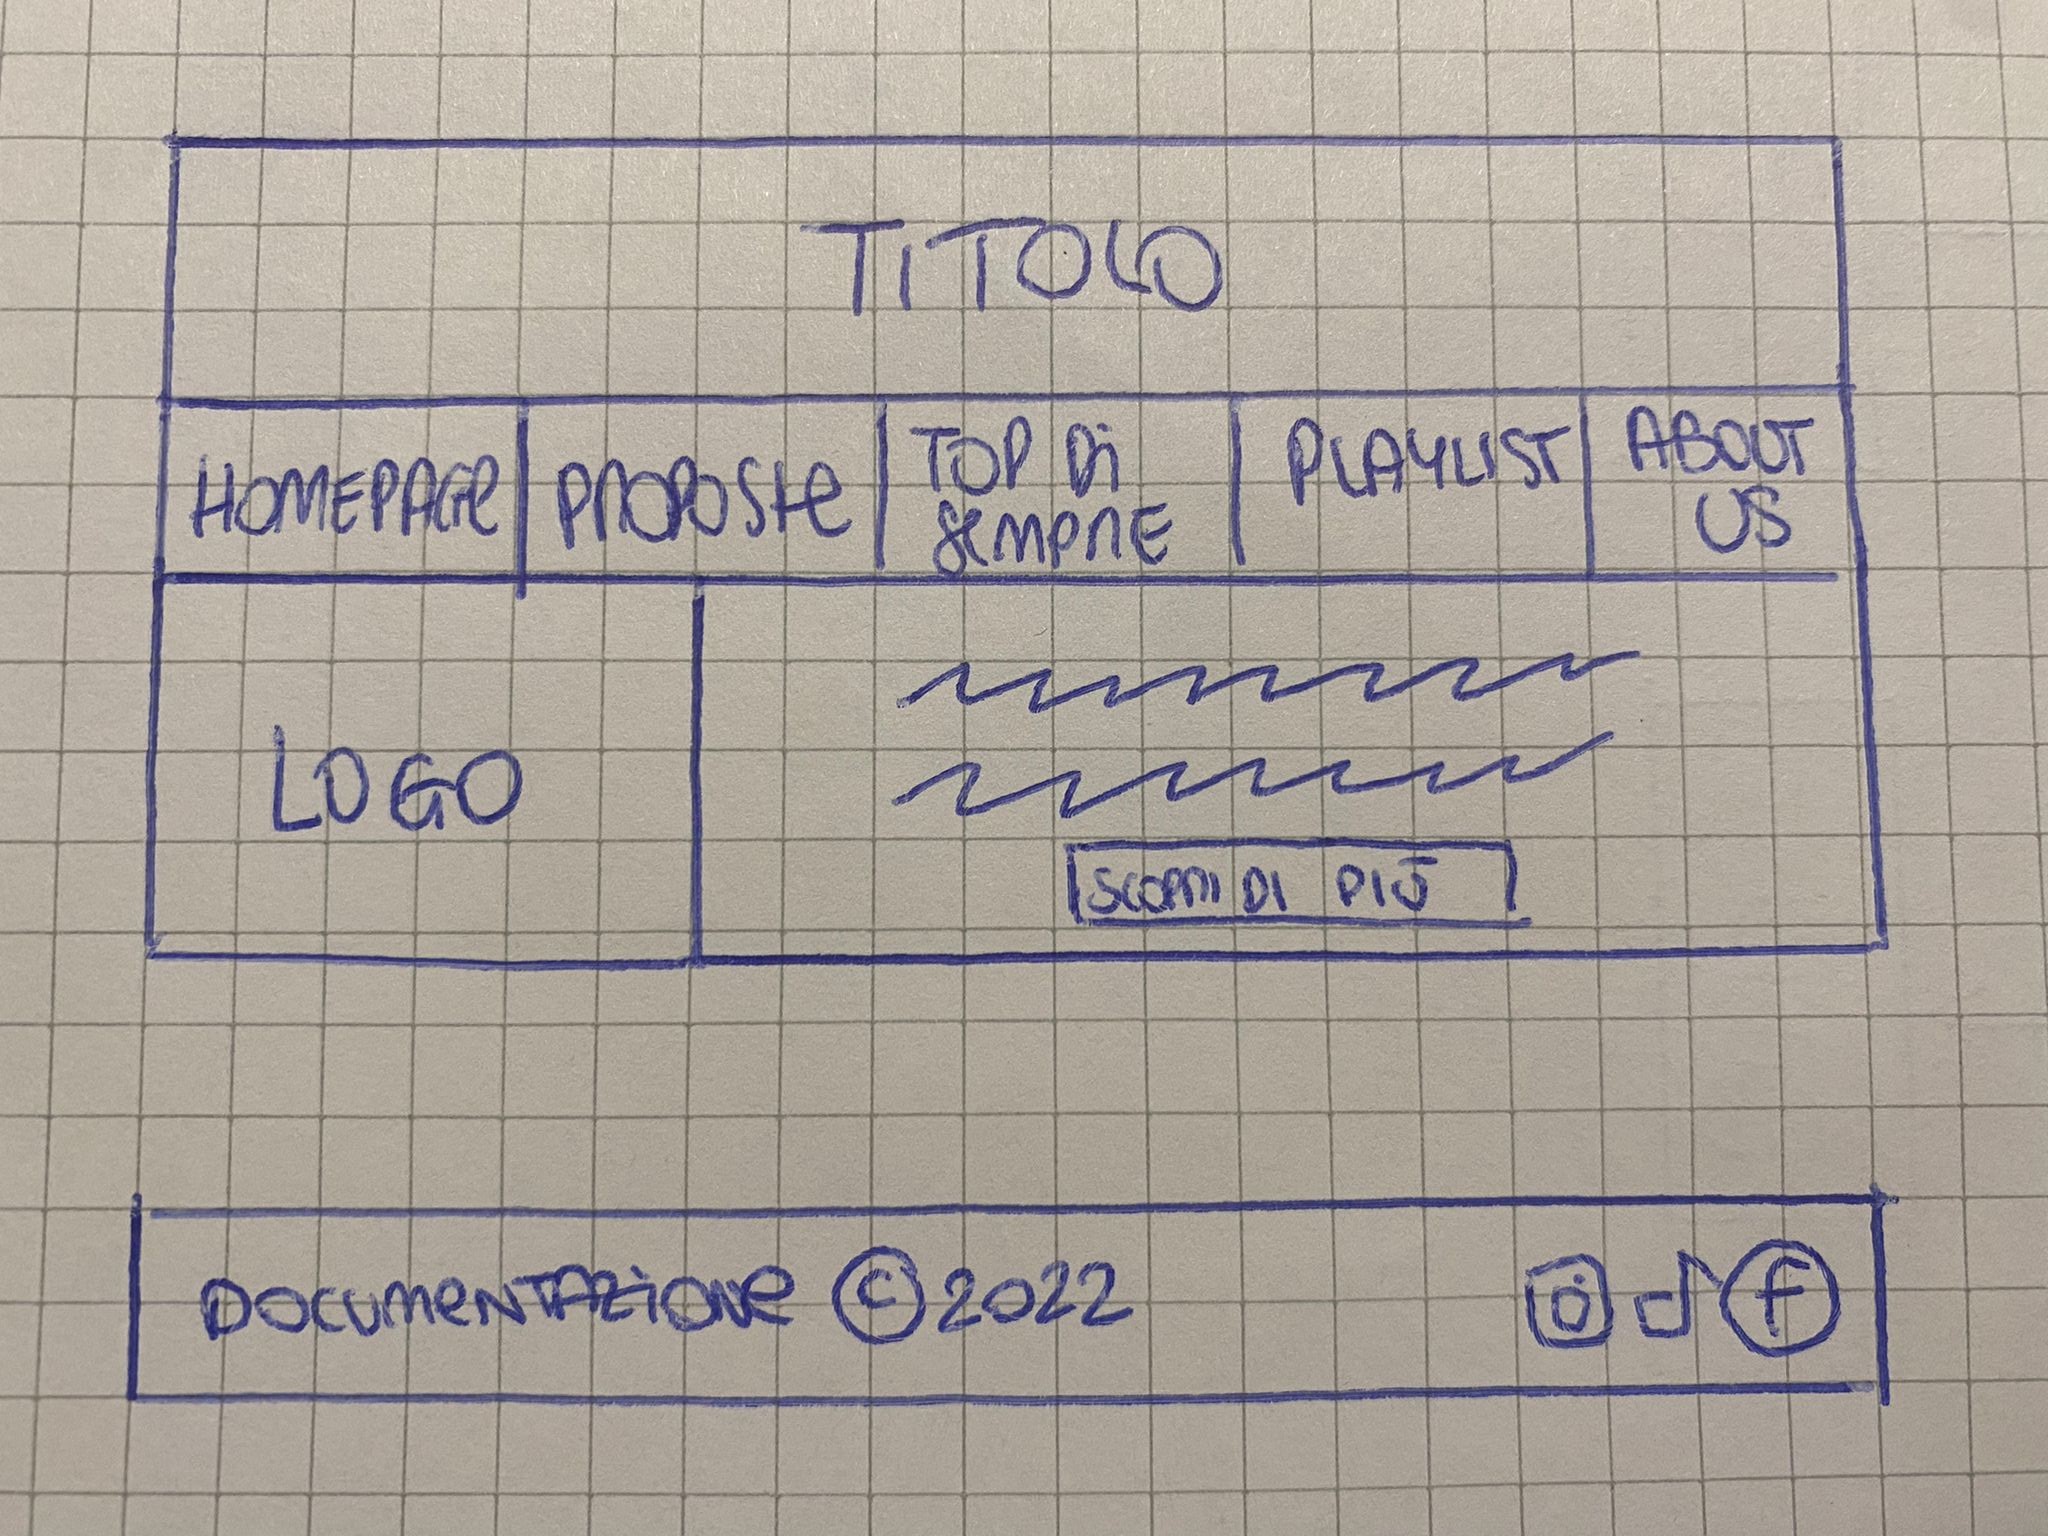 TITOLO
HOMEPAGE PROPOSTE TOP Di SEMPRE PLAYLIST ABOUT US
LOGO
SCOPRI DI PIÙ
DOCUMENTAZIONE © 2022
f